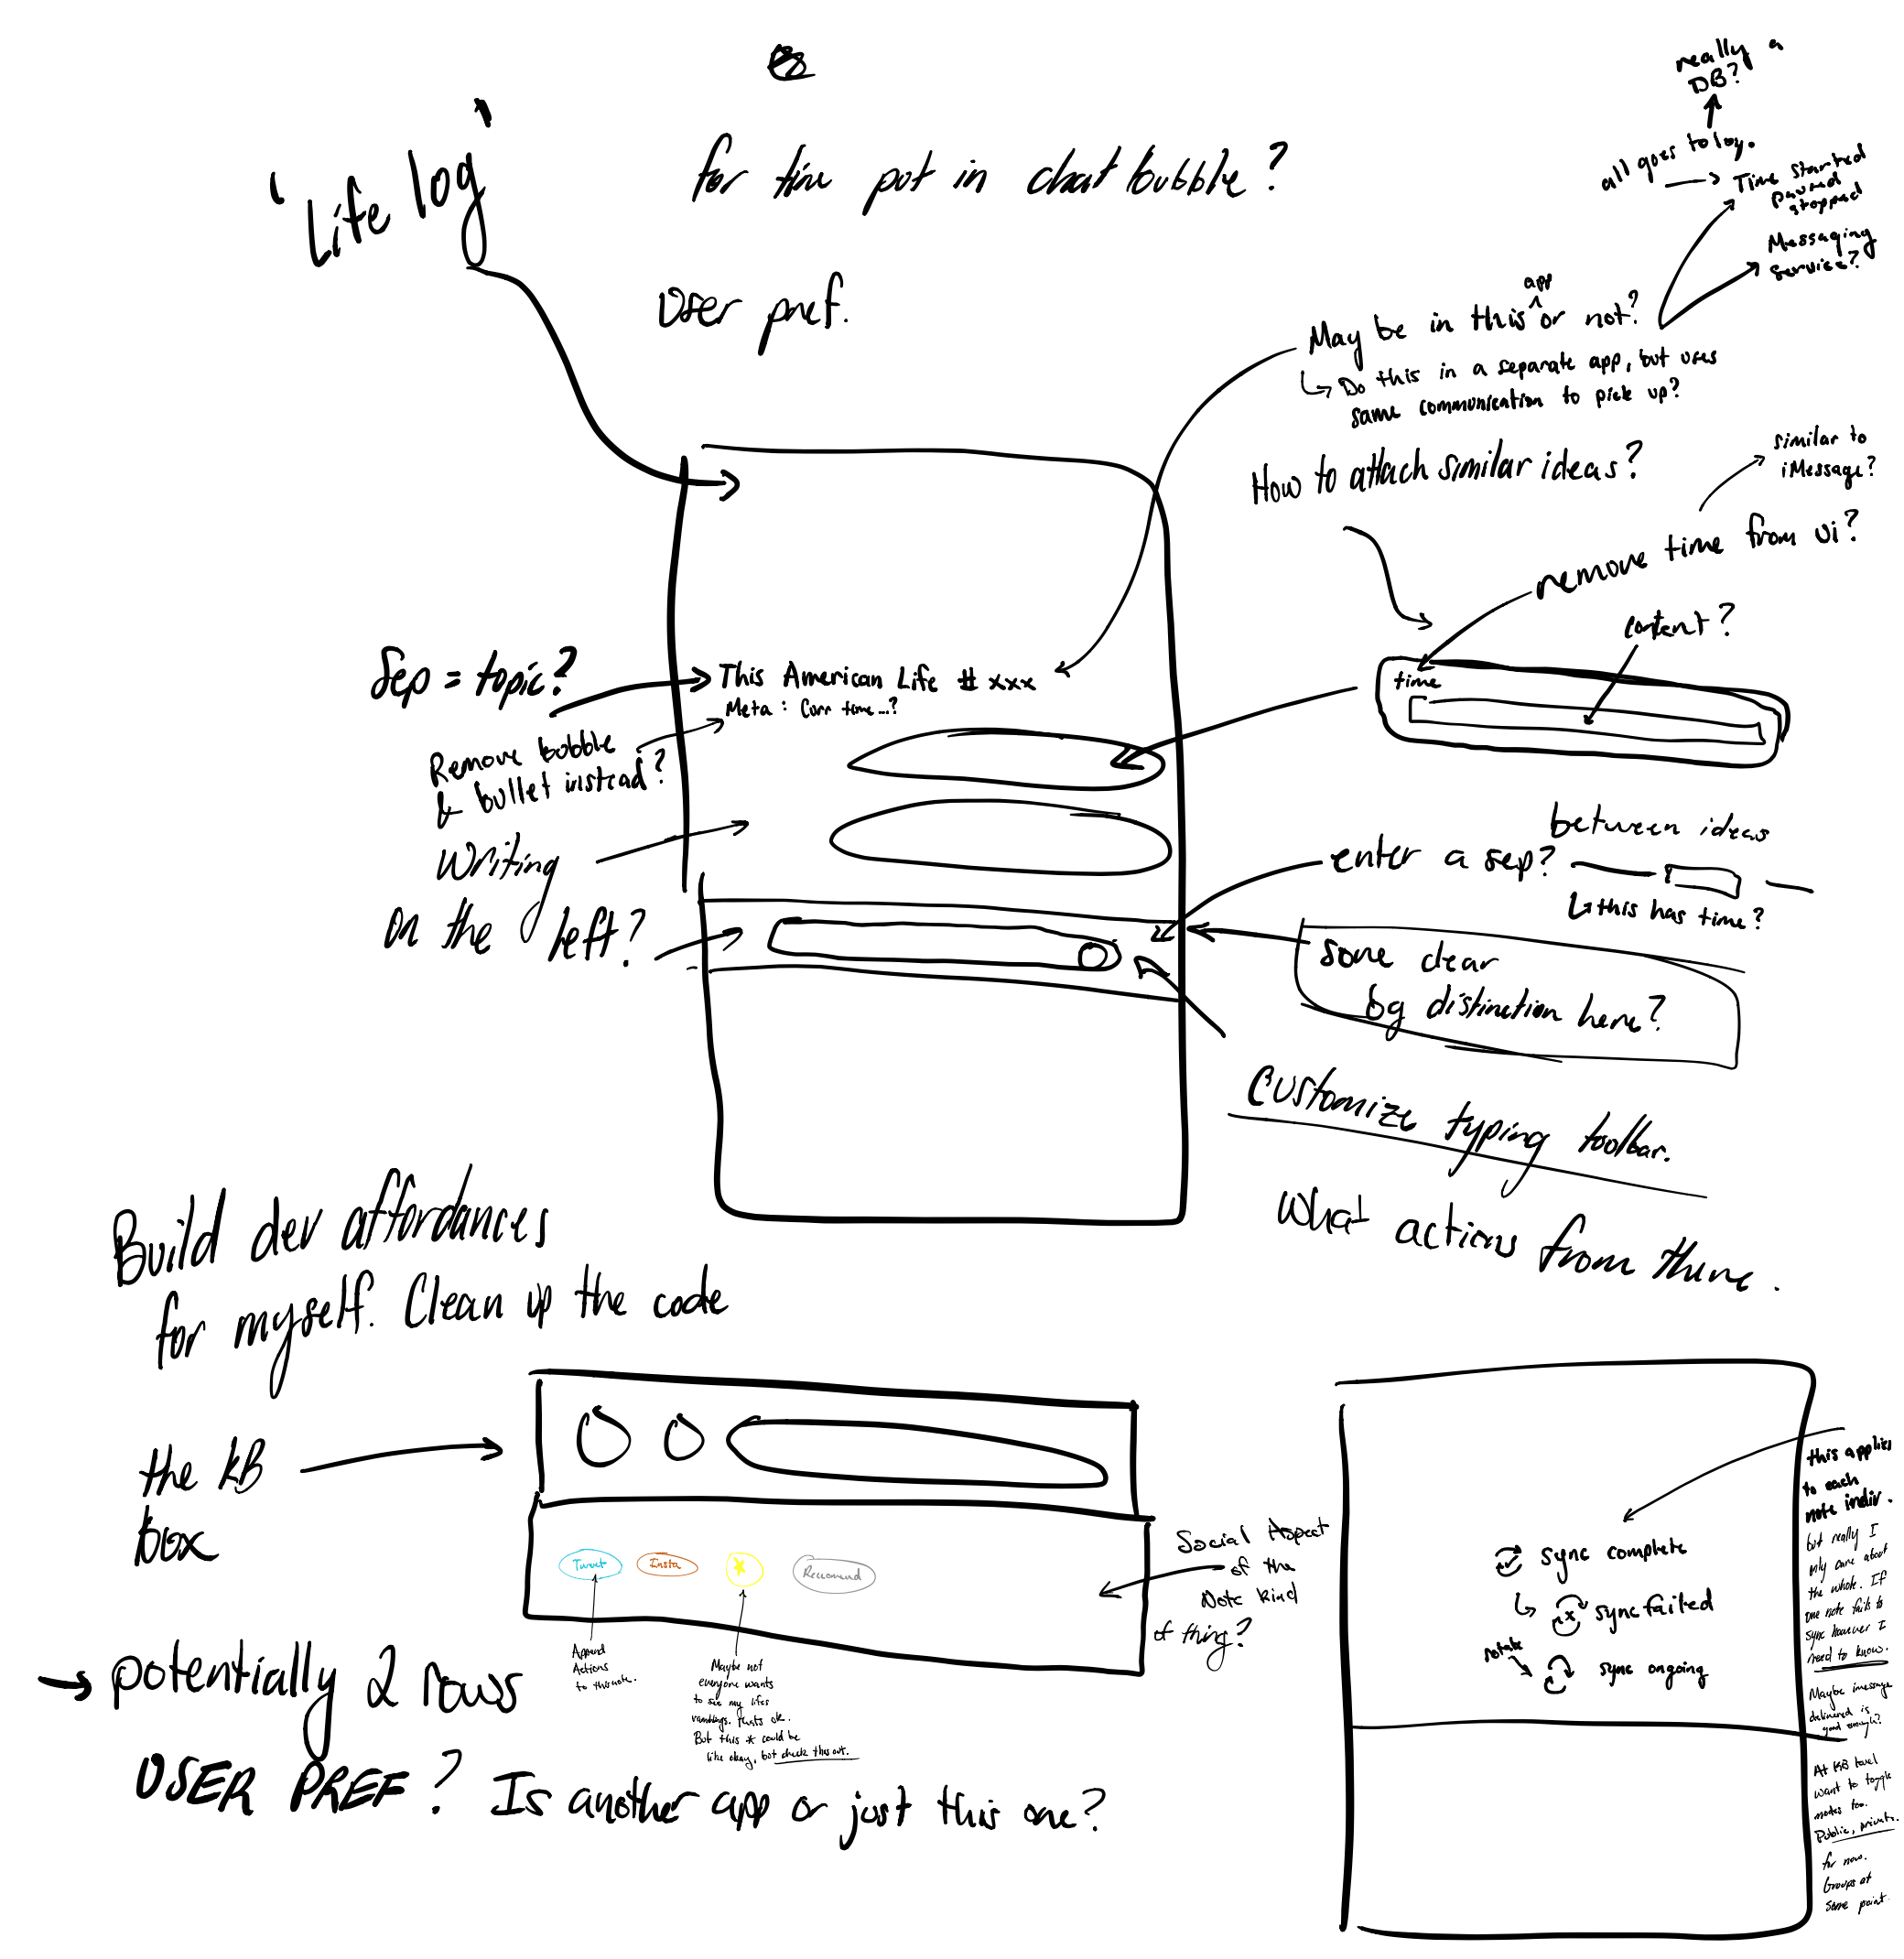 'Life log'
for time put in chat bubble?
User pref.
really a
DB?
all goes to log.
Time started
paused
stopped
Messaging
service?
app
May be in this ^ or not?
Do this in a separate app, but uses
same communication to pick up?
How to attach similar ideas?
similar to
iMessage?
remove time from ui?
content?
time
Sep = topic?
This American Life # xxx
Meta : Curr time...?
Remove bubble
& bullet instead?
Writing
on the left?
between ideas
enter a sep?
this has time?
some clear
bg distinction here?
Customize typing toolbar.
What actions from there.
Build dev affordances
for myself. Clean up the code
the KB
box
Tweet
Insta
Reccomend
Append
Actions
to this note.
Maybe not
everyone wants
to see my lifes
ramblings. thats ok.
But this * could be
like okay, but check this out.
Social Aspect
of the
Note kind
of thing?
potentially 2 rows
USER PREF? Is another app or just this one?
sync complete
sync failed
rotate
sync ongoing
this applies
to each
note indiv.
but really I
only care about
the whole. If
one note fails to
sync however I
need to know.
Maybe imessage
delivered is
good enough?
At KB level
want to toggle
modes too.
Public, private.
for now.
Groups at
some point.